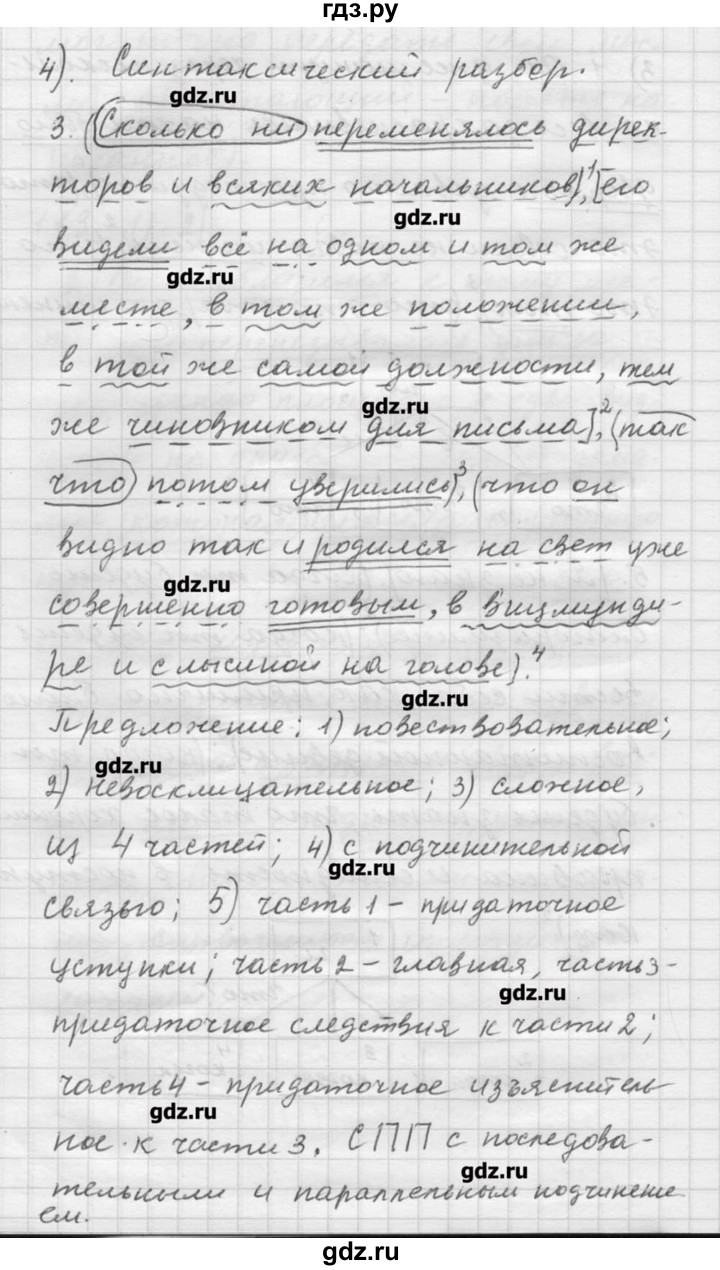 гдз.ру
4). Синтаксический разбор.
gdz.ru
3. (Сколько ни переменялось дирек-
торов и всяких начальников),¹ [его
gdz.ru
видели всё на одном и том же
gdz.ru
месте, в том же положении,
в той же самой должности, тем
gdz.ru
же чиновником для письма],² (так
что потом уверились),³ (что он
видно так и родился на свет уже
gdz.ru
совершенно готовым, в вицмунди-
ре и с лысиной на голове).⁴
gdz.ru
Предложение: 1) повествовательное;
gdz.ru
2) невосклицательное; 3) сложное,
из 4 частей; 4) с подчинительной
gdz.ru
связью; 5) часть 1 – придаточное
уступки; часть 2 – главная, часть 3 –
gdz.ru
придаточное следствия к части 2;
часть 4 – придаточное изъяснитель-
gdz.ru
ное к части 3. СПП с последова-
gdz.ru
тельными и параллельным подчинени
ем.
gdz.ru